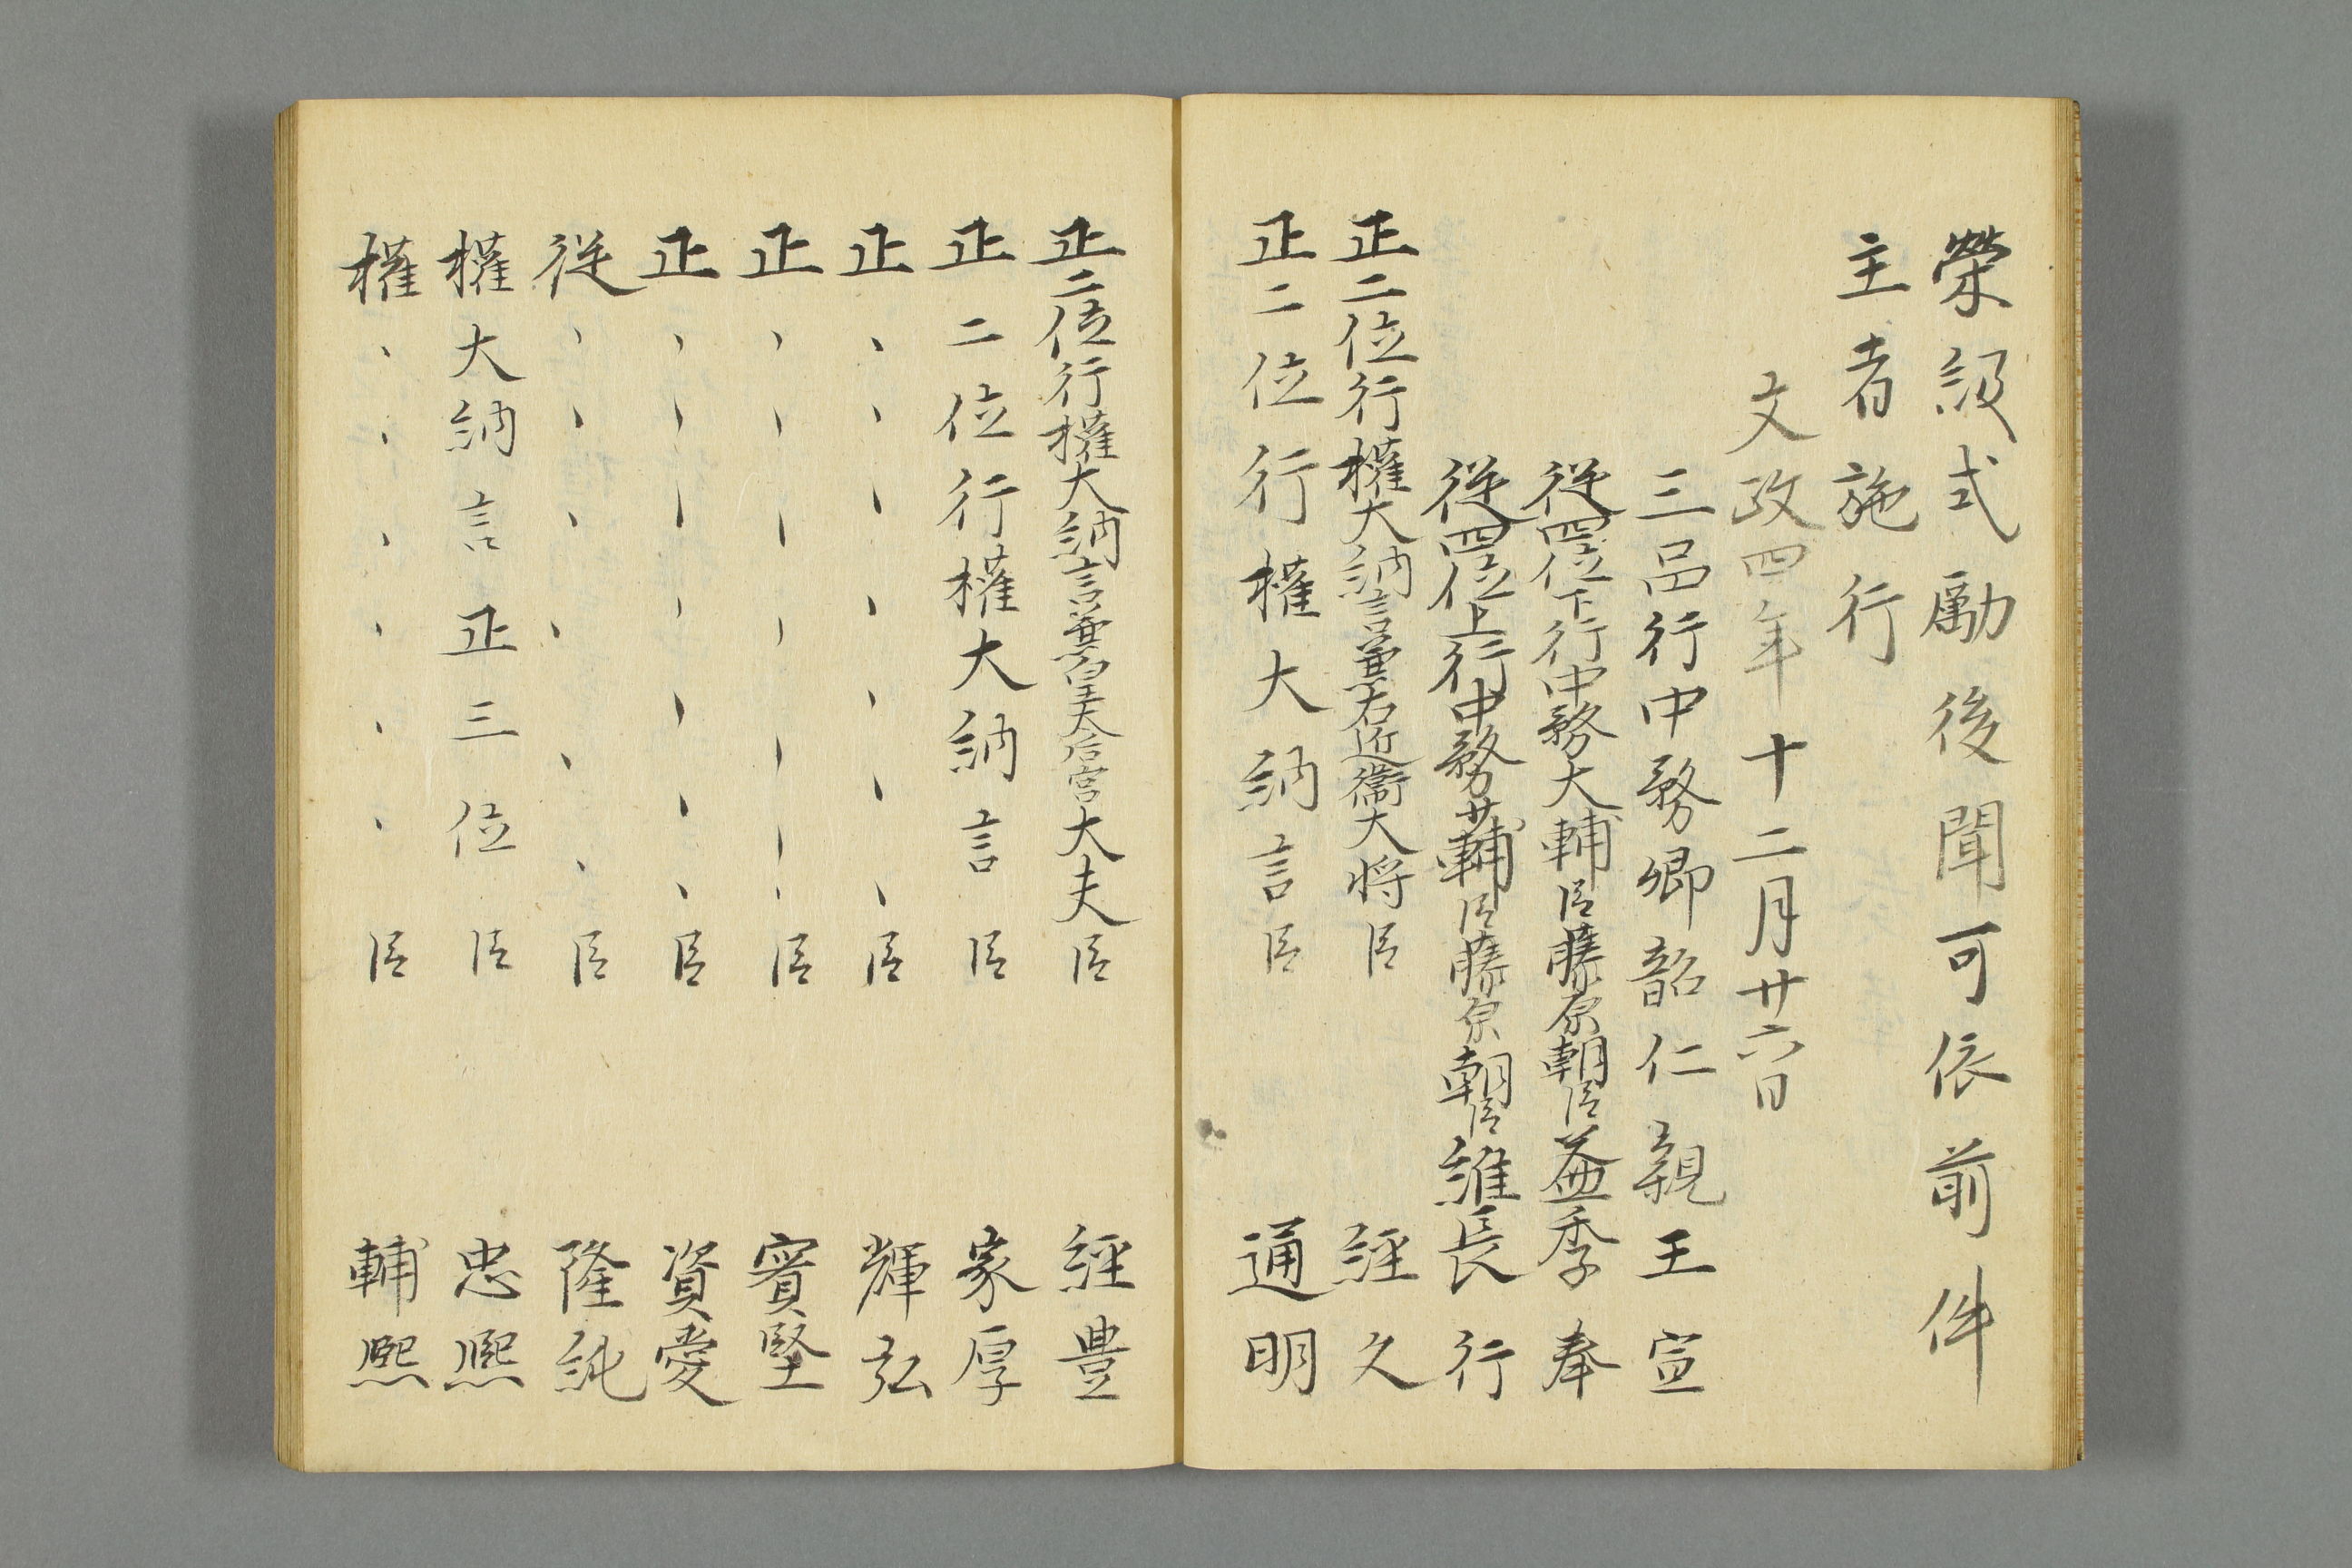 榮級式勵後聞可依前件
主者施行
文政四年十二月廿六日
三品行中務卿韶仁親王宣
従四位下行中務大輔臣藤原朝臣益季奉
従四位上行中務少輔臣藤原朝臣維長行
正二位行權大納言兼右近衞大将臣 経久
正二位行權大納言臣 通明
正二位行權大納言兼皇太后宮大夫臣 経豊
正二位行權大納言臣 家厚
正、、、、、、臣 輝弘
正、、、、、、臣 實堅
正、、、、、、臣 資愛
従、、、、、、臣 隆純
權大納言正三位臣 忠熈
權、、、、、、臣 輔熈